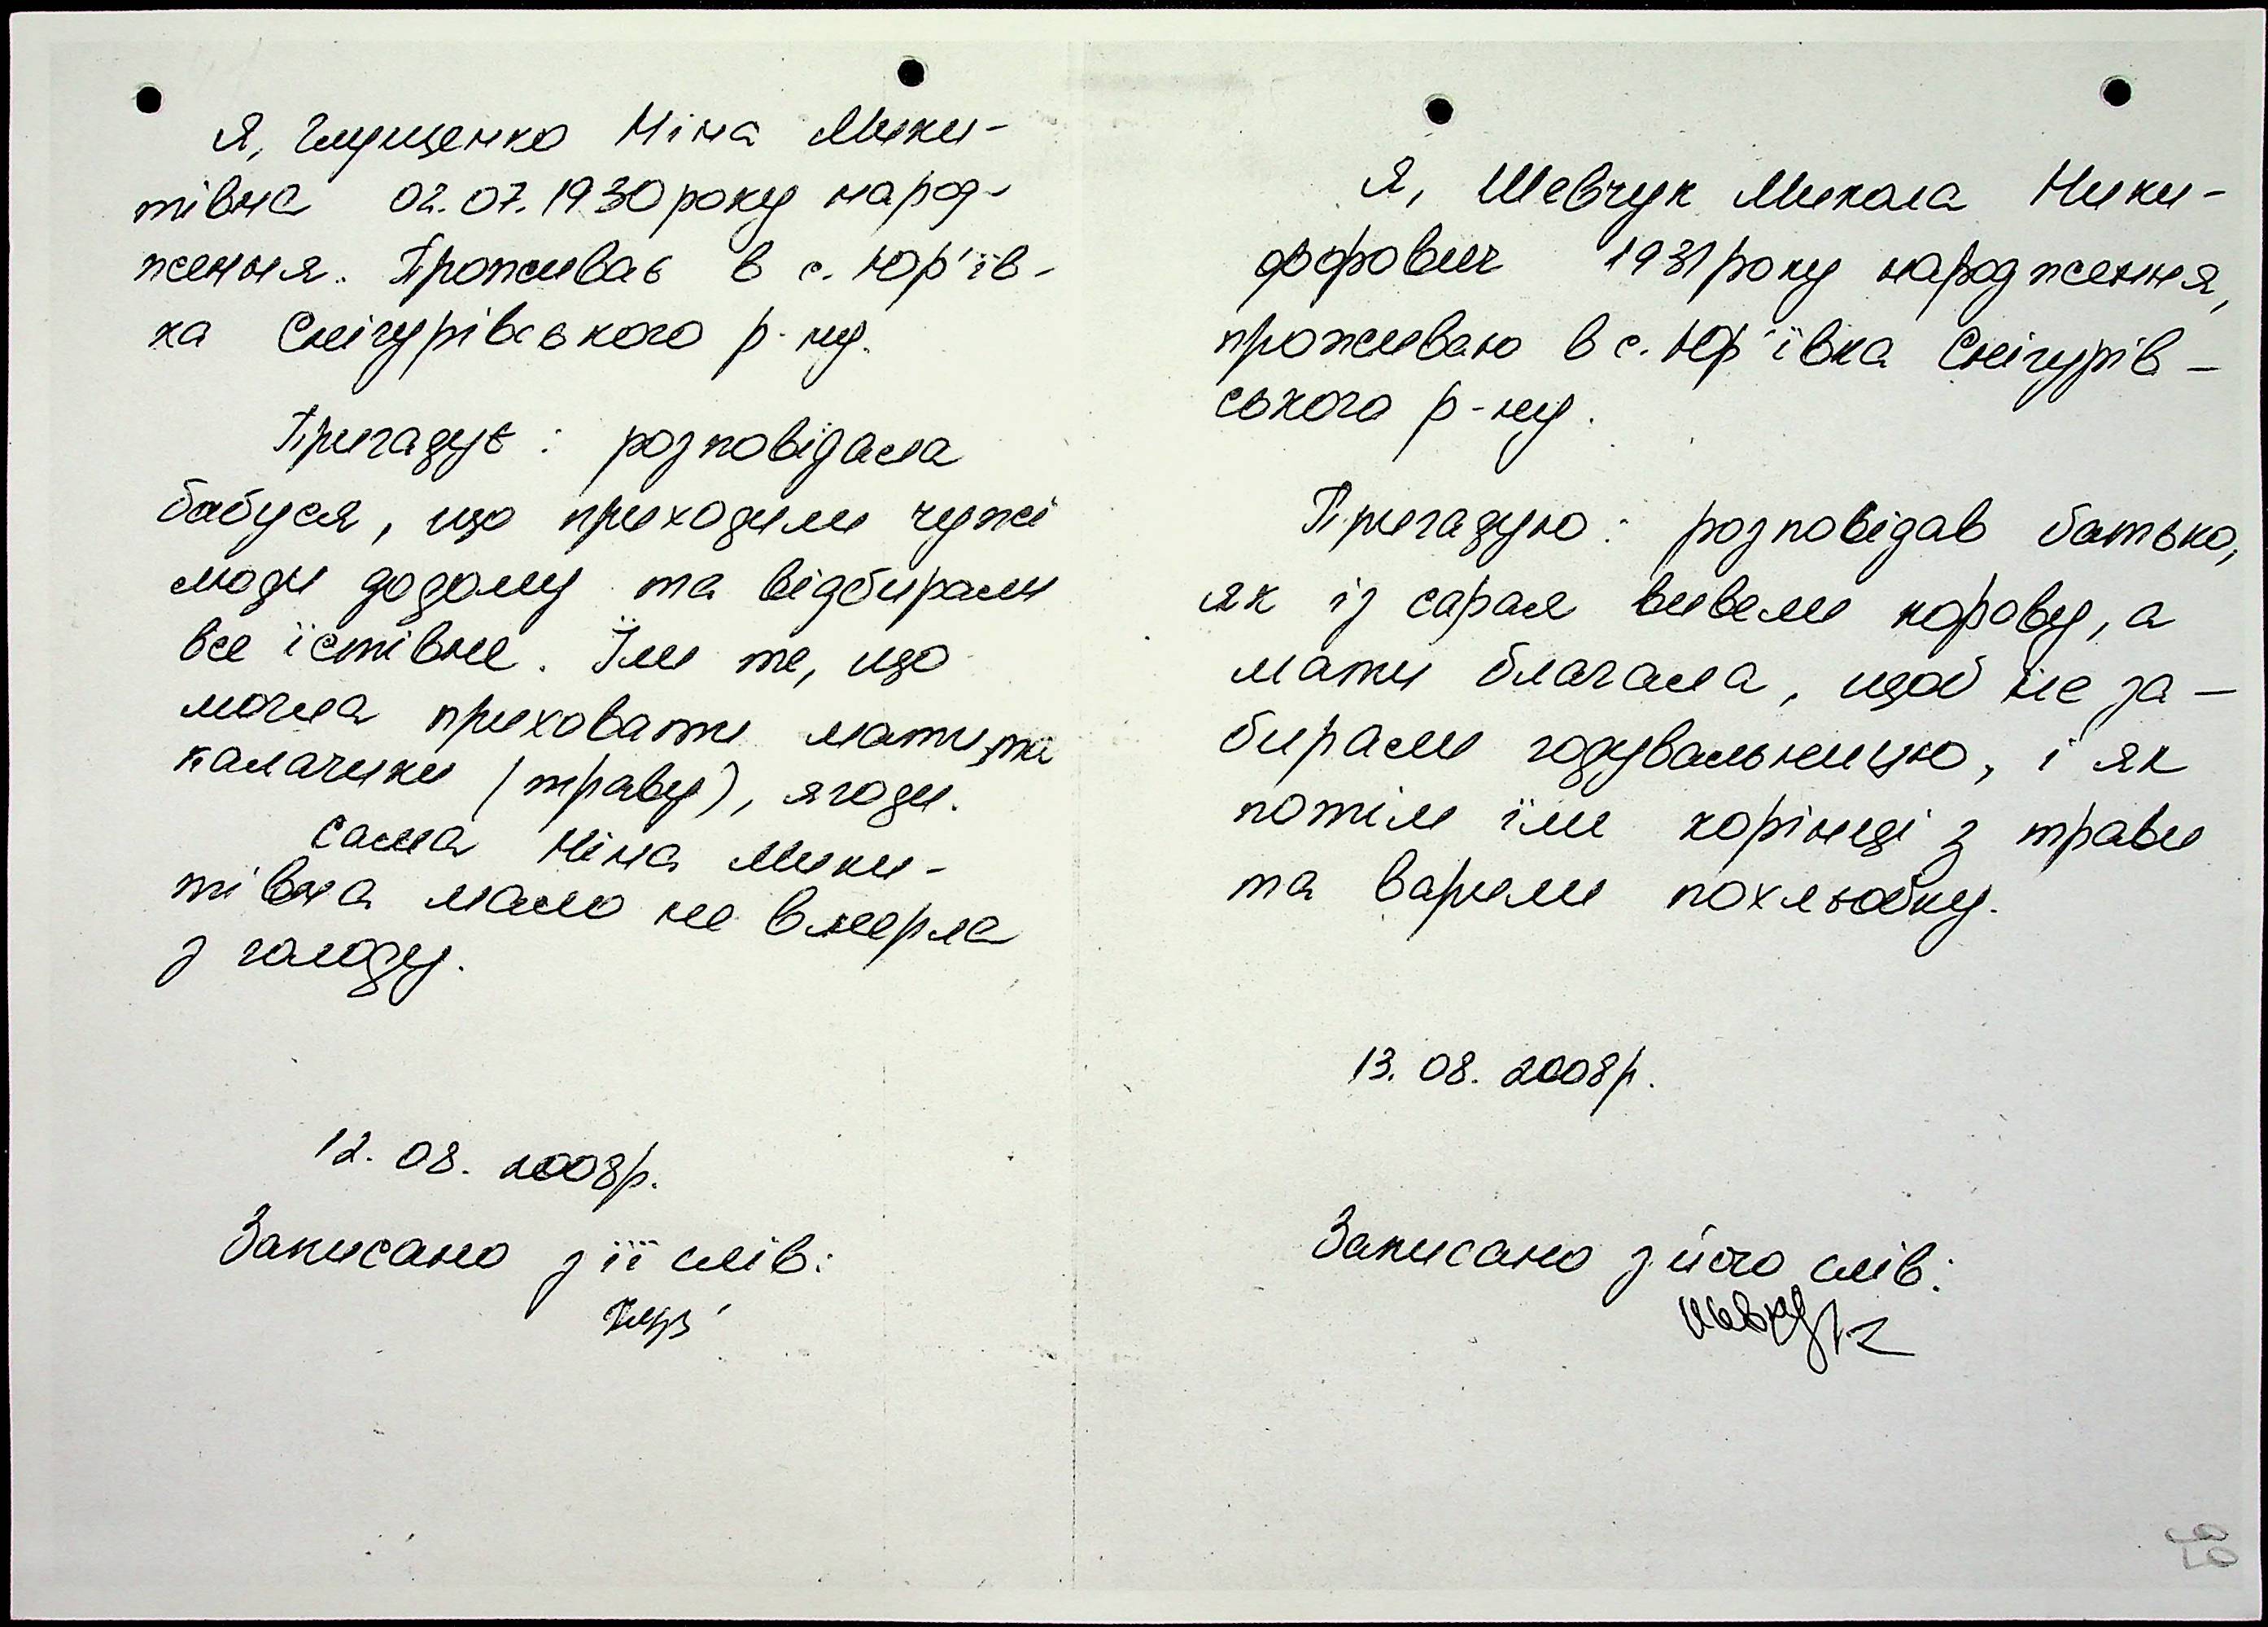 Я, Глущенко Ніна Мики-
тівна 02.07.1930 року народ-
ження. Проживає в с. Юр'їв-
ка Снігурівського р-ну.
Пригадує: розповідала
бабуся, що приходили чужі
люди додому та відбирали
все їстівне. Їли те, що
могла приховати мати, та
калачики (траву), ягоди.
Сама Ніна Мики-
тівна мало не вмерла
з голоду.
12. 08. 2008р.
Записано з її слів:
Я, Шевчук Микола Ники-
форович 1931 року народження,
проживаю в с. Юр'ївка Снігурів-
ського р-ну.
Пригадую: розповідав батько,
як із сарая вивели корову, а
мати благала, щоб не за-
бирали годувальницю, і як
потім їли корінці з трави
та варили похльобку.
13. 08. 2008р.
Записано з його слів: